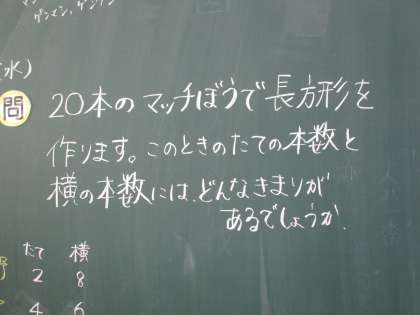 ゲンマン、ゲンマン
水)
問 20本のマッチぼうで長方形を
作ります。このときのたての本数と
横の本数には、どんなきまりが
あるでしょうか。
たて 横
野 2 8
4 6